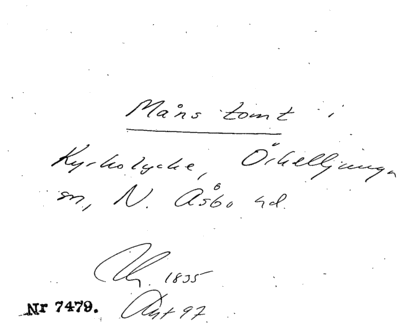 Måns tomt i
Kyrkolycke, Örkelljunga
sn, N. Åsbo hd.
1835
Nr 7479.
97